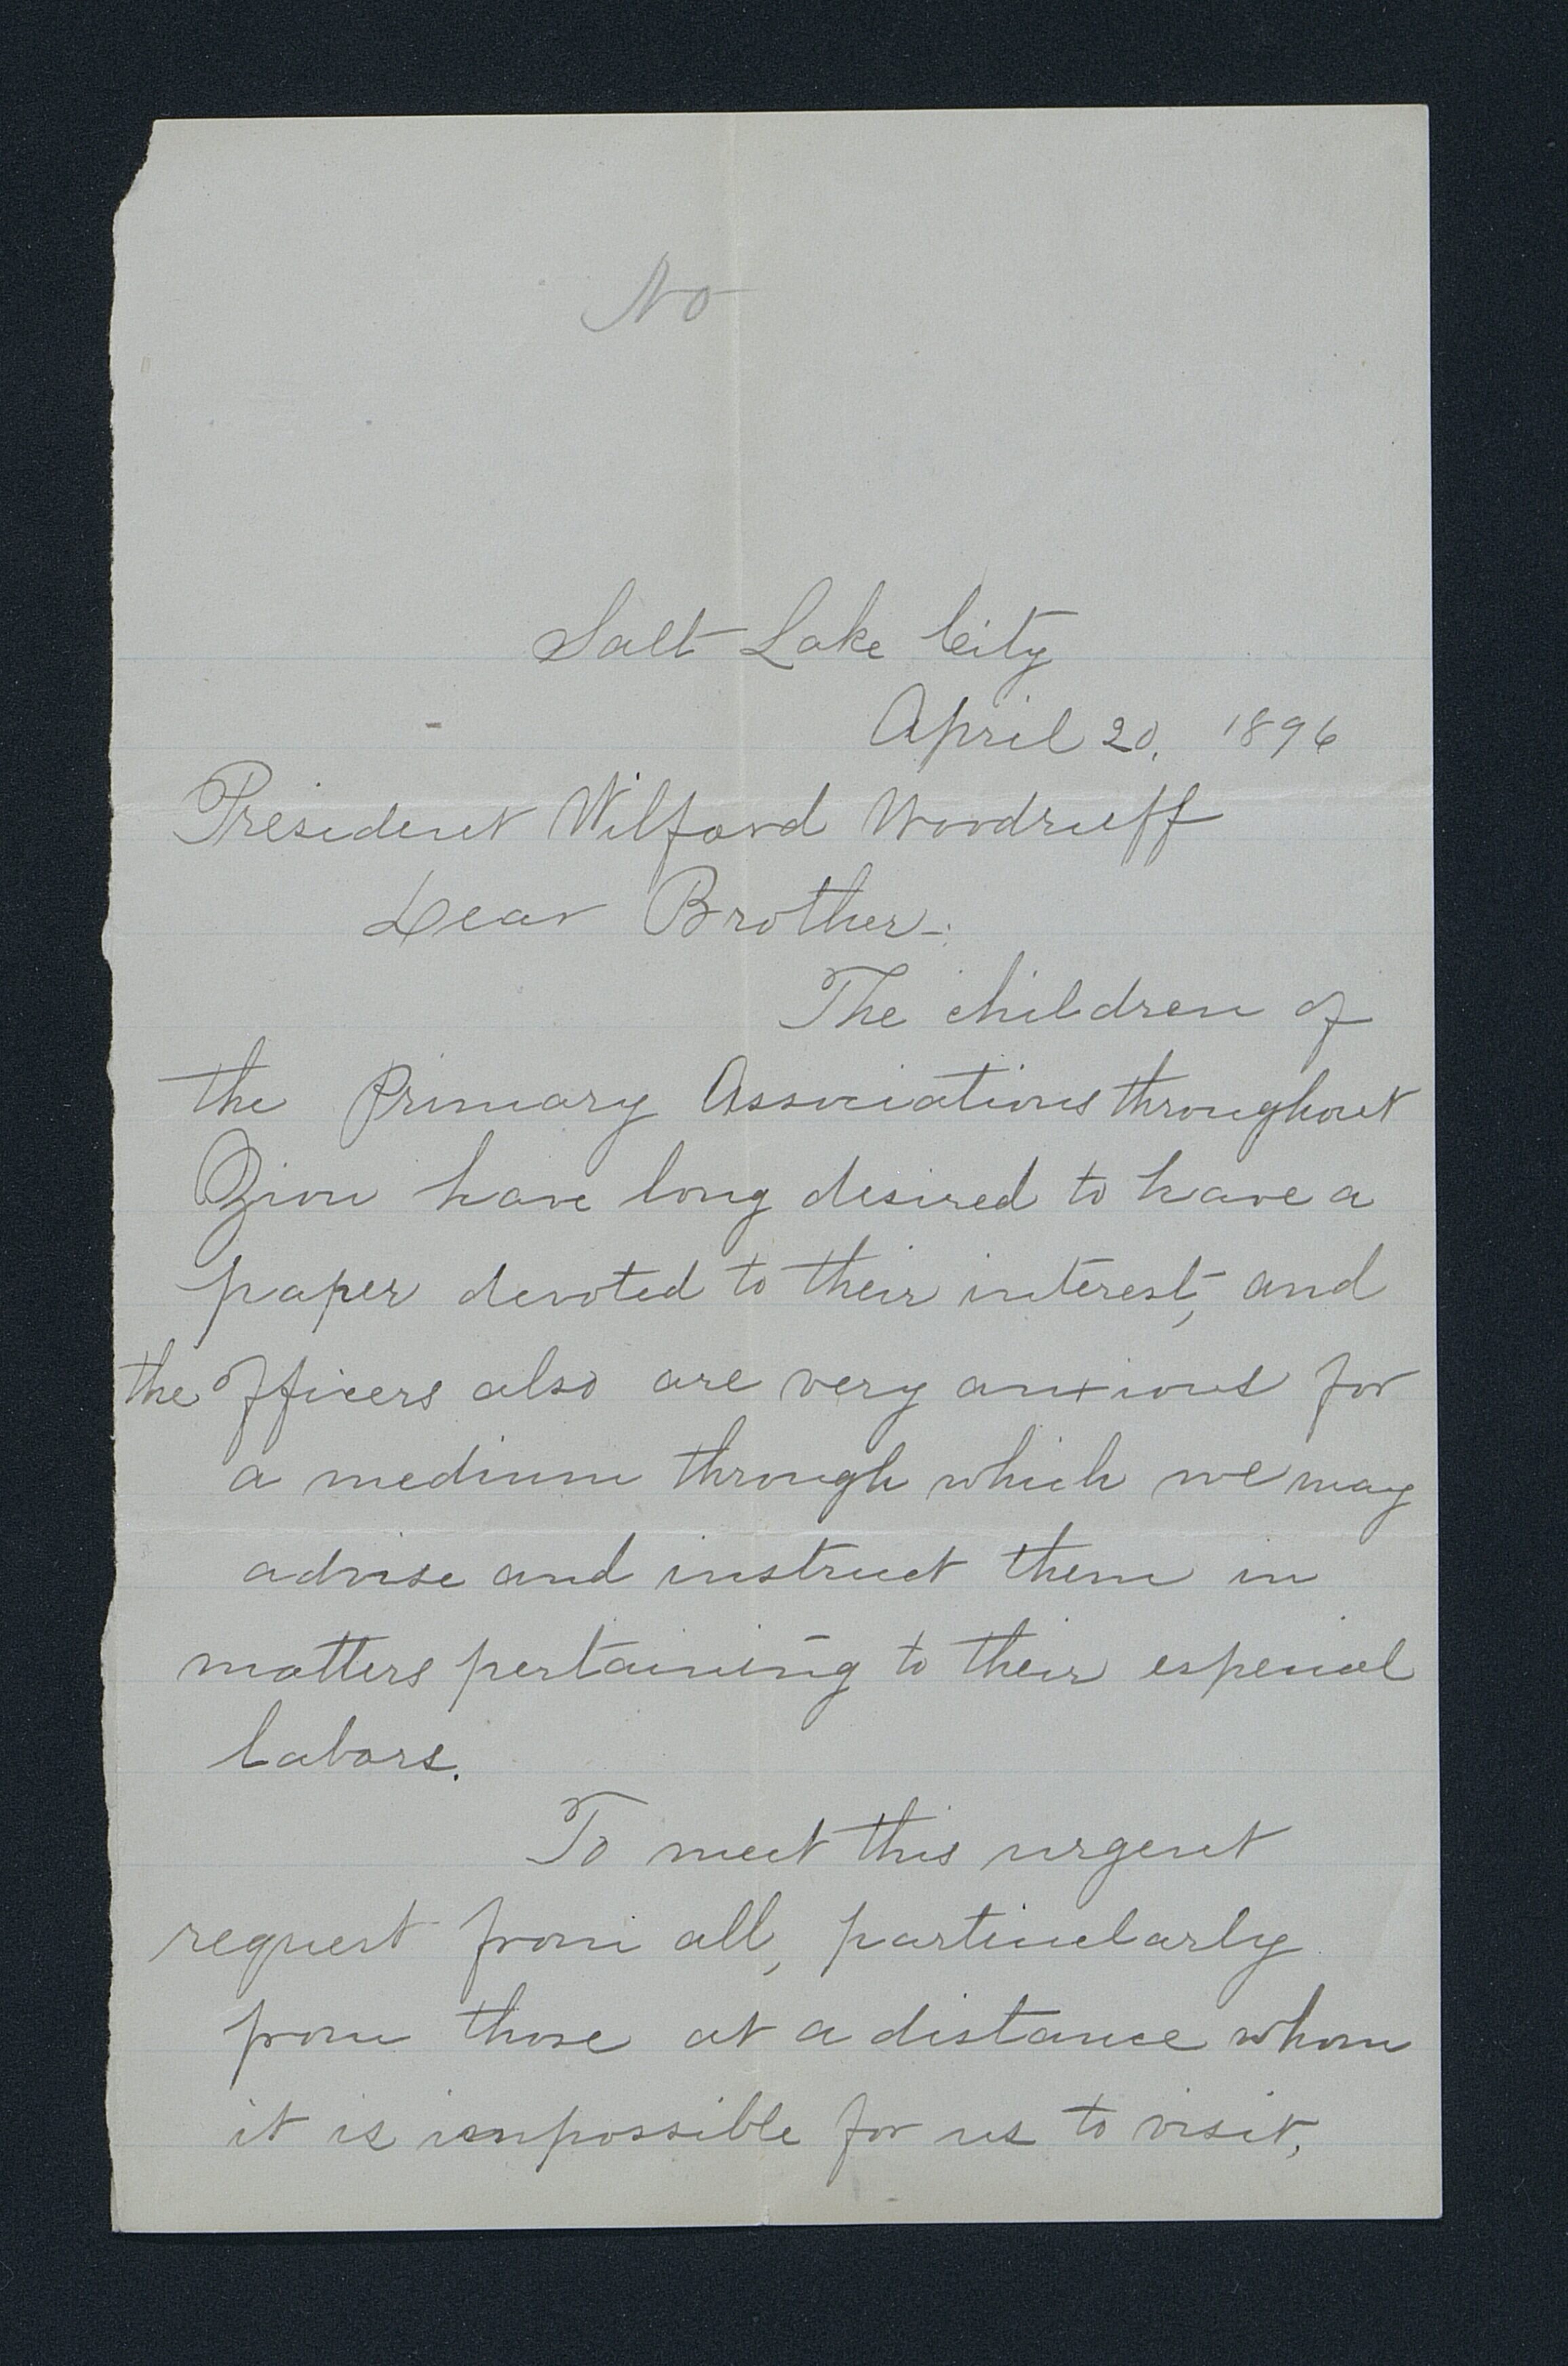 No
Salt Lake City
April 20, 1896
President Wilford Woodruff
Dear Brother-:
The children of
the Primary Associations throughout
Zion have long desired to have a
paper devoted to their interest, and
the officers also are very anxious for
a medium through which we may
advise and instruct them in
matters pertaining to their especial
labors.
To meet this urgent
request from all, particularly
from those at a distance whom
it is impossible for us to visit,